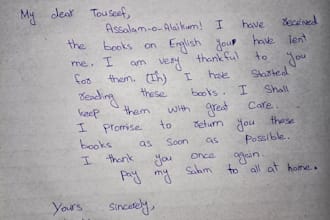 My dear Touseef,
Assalam-o-Alaikum! I have received
the books on English your have lent
me. I am very thankful to you
for them. (Ih) I have started
reading these books. I shall
keep them with great care.
I promise to return you these
books as soon as possible.
I thank you once again.
Pay my salam to all at home.
Yours sincerely,